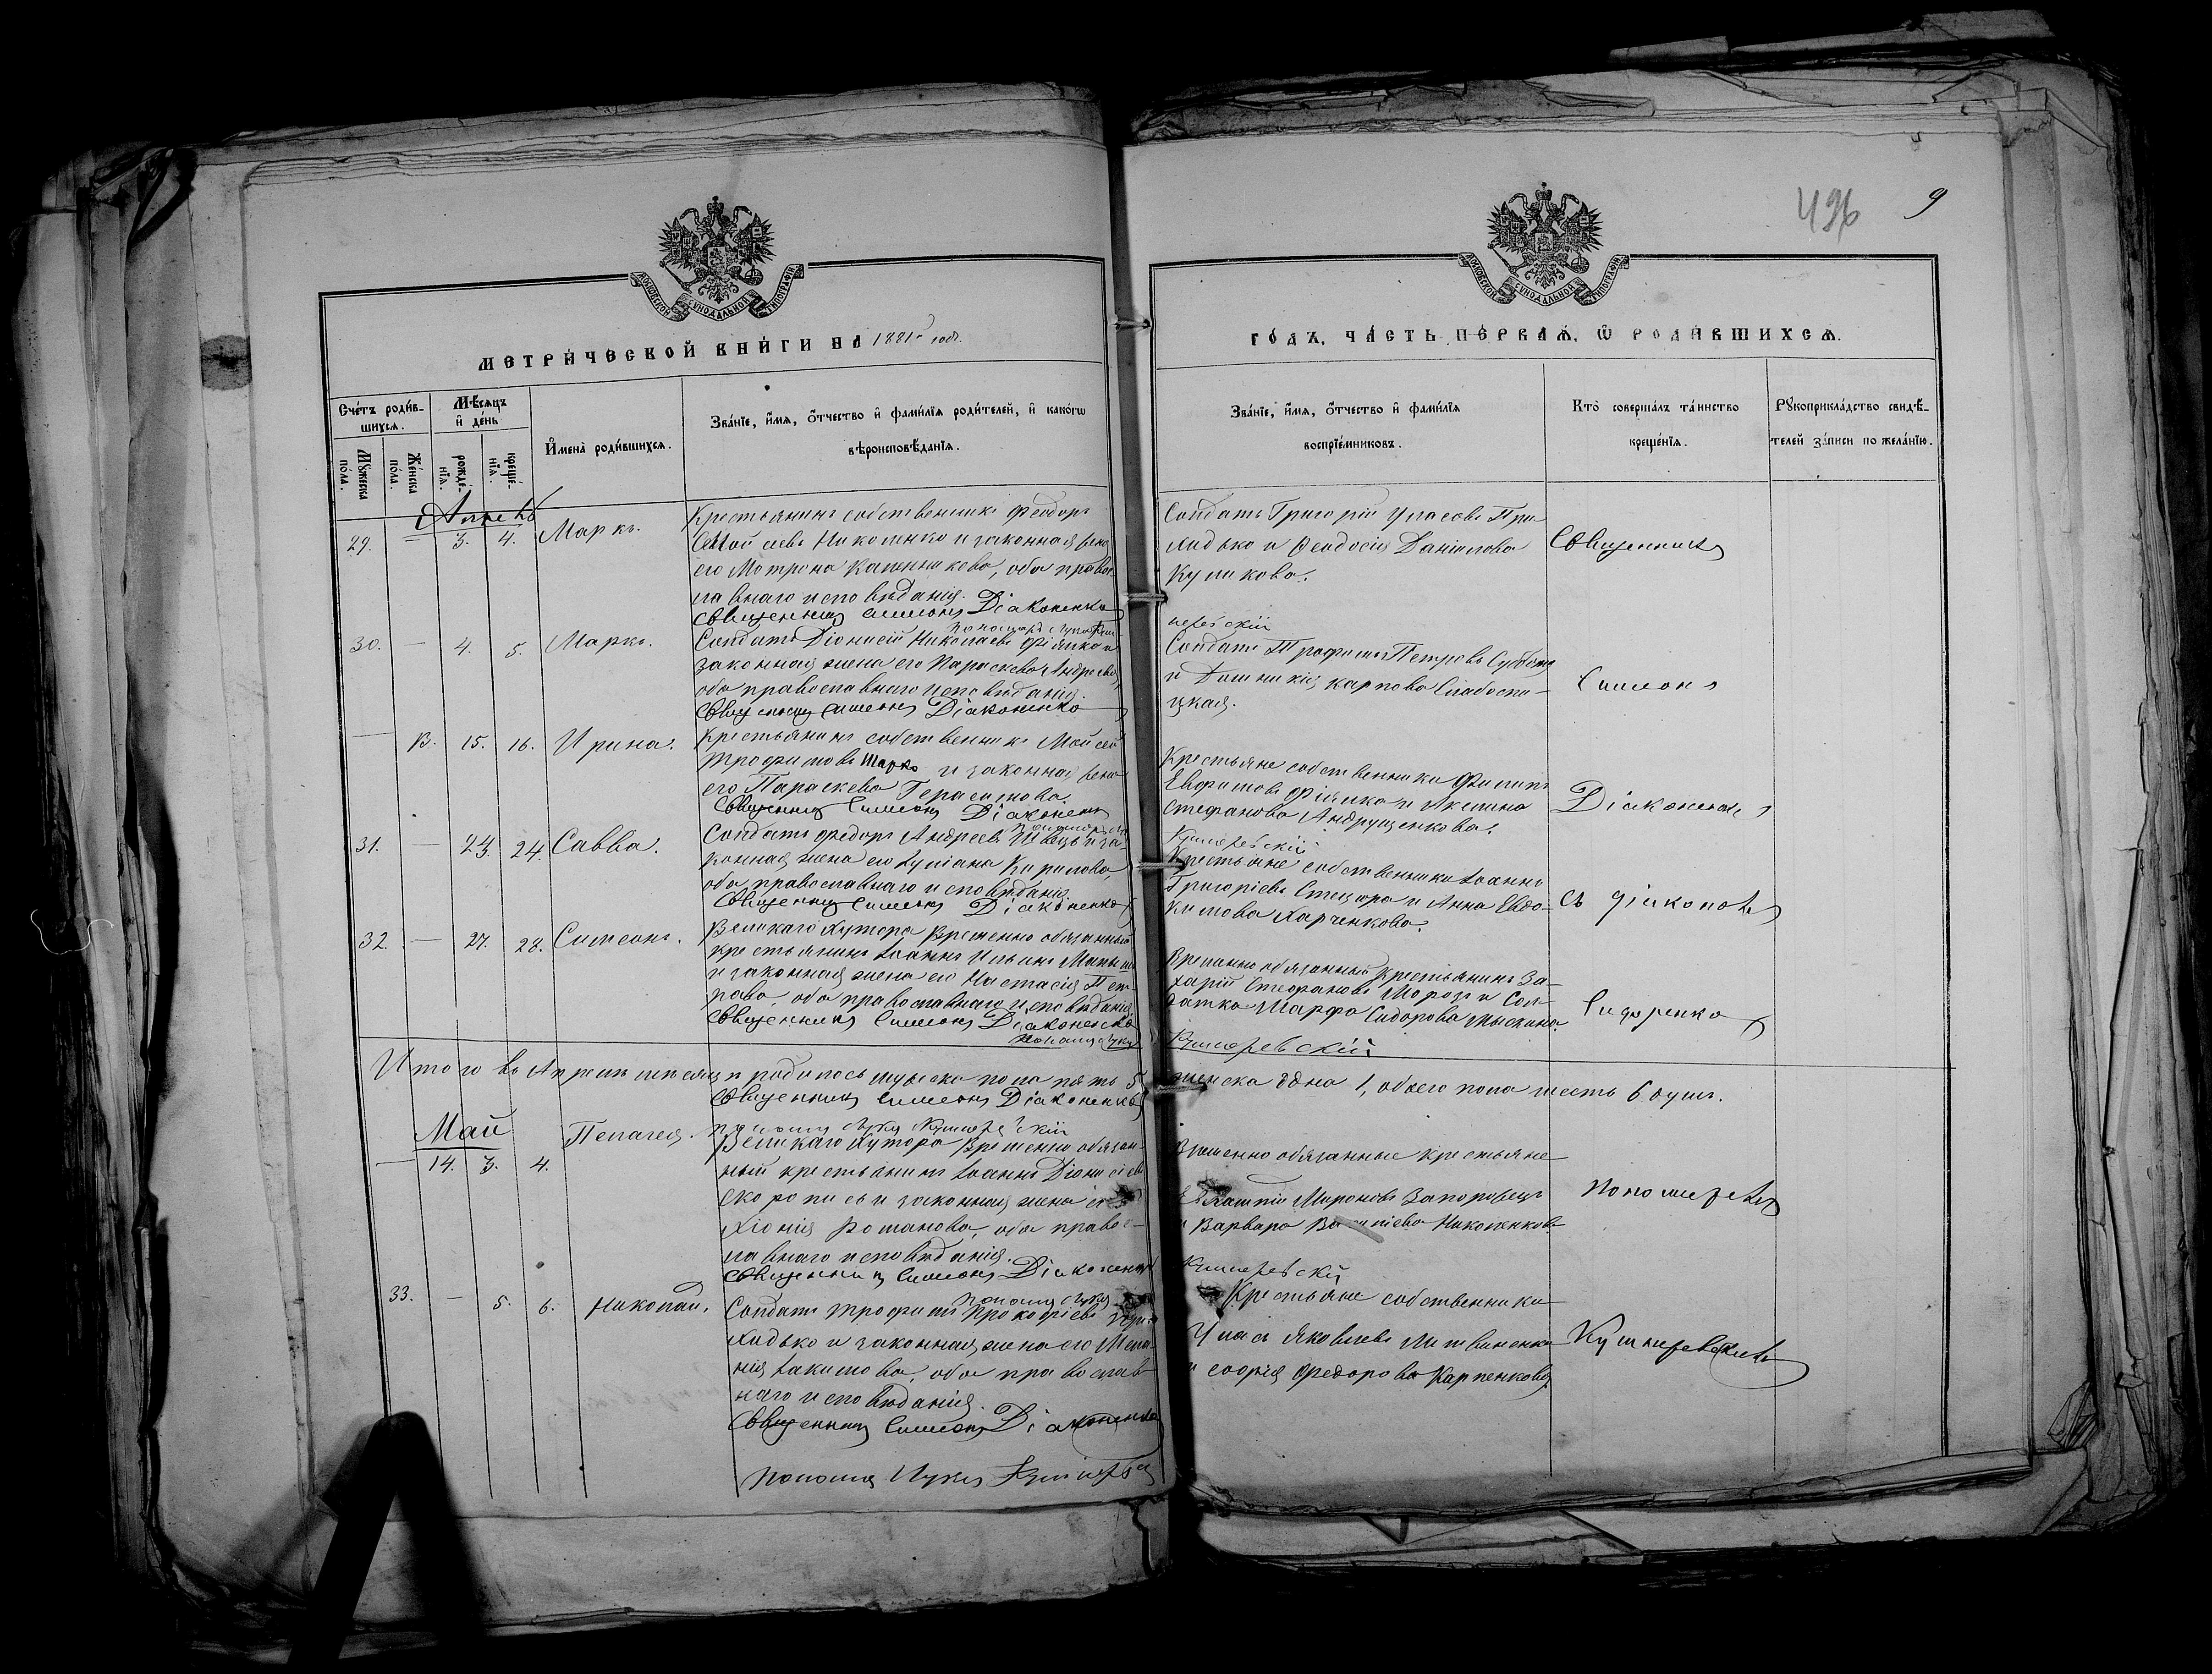 496 9
МОСКОВСКОЙ СУНОДАЛЬНОЙ ТИПОГРАФІИ
МЕТРИ́ЧЕСКОЙ КНИ́ГИ НА 1881й годъ.
Сче́тъ роди́в-
шихсѧ.
Мꙋжеска
по́ла.
Же́нска
по́ла.
Мѣ́сѧцъ
и҆ де́нь
рожде́-
нїѧ.
креще́-
нїѧ.
И҆мена̀ роди́вшихсѧ.
Зва́нїе, и҆́мѧ, ѻ҆́тчество и҆ фами́лїѧ роди́телей, и҆ како́гѡ
вѣроисповѣ́данїѧ.
Апрель
29. — 3. 4. Маркъ.
Крестьянинъ собственникъ Феодоръ
Николенко и законная жена
его Матрона Калинникова, оба правос-
лавнаго исповѣданія.
Священникъ Симеонъ Діаконенко
30. — 4. 5. Маркъ.
Солдатъ Діонисій Николаевъ Фіялко и
законная жена его Параскева Андреева,
оба православнаго исповѣданія.
Священникъ Симеонъ Діаконенко
— 13. 15. 16. Ирина.
Крестьянинъ собственникъ Мойсей
Трофимовъ Шарко и законная жена
его Параскева Герасимова.
Священникъ Симеонъ Діаконенко
31. — 23. 24. Савва.
Солдатъ Федоръ Андреевъ Швецъ и за-
конная жена его Іуліана Кирилова,
оба православнаго исповѣданія.
Священникъ Симеонъ Діаконенко
32. — 27. 28. Симеонъ.
Великаго Хутора временно обязанный
крестьянинъ Іоаннъ Ильинъ
и законная жена его Настасія Пет-
рова, оба православнаго исповѣданія.
Священникъ Симеонъ Діаконенко
Итого въ Апрелѣ мѣсяцѣ родилось мужеска пола пять 5
Священникъ Симеонъ Діаконенко
Май
— 14. 3. 4. Пелагея.
Великаго Хутора временно обязан-
ный крестьянинъ Іоаннъ Діонисіевъ
Скоропись и законная жена его
Хіонія Романова, оба правос-
лавнаго исповѣданія.
Священникъ Симеонъ Діаконенко
33. — 5. 6. Николай.
Солдатъ Трофимъ Прокофіевъ При-
ходько и законная жена его Мела-
нія Іакимова, оба православ-
наго исповѣданія.
Священникъ Симеонъ Діаконенко
Пономарь Лука
МОСКОВСКОЙ СУНОДАЛЬНОЙ ТИПОГРАФІИ
ГО́ДЪ, ЧА́СТЬ ПЕ́РВАѦ, Ѡ҆ РОДИ́ВШИХСѦ.
Зва́нїе, и҆́мѧ, ѻ҆́тчество и҆ фами́лїѧ
воспрїе́мниковъ.
Кто̀ соверша́лъ та́инство
креще́нїѧ.
Рꙋкоприкла́дство свидѣ́-
телей за́писи по жела́нїю.
Солдатъ Григорій Уласовъ При-
ходько и Феодосія Даніилова
Куликова.
Священникъ
Солдатъ Трофимъ Петровъ Суббота
и Домникія Карпова Слабоспи-
цкая.
Симеонъ
Крестьяне собственники Филипъ
Евфимовъ Фіялко и Акилина
Стефанова Андрущенкова.
Діаконенко
Кушнеревскій
Крестьяне собственники Іоаннъ
Григоріевъ Стецюра и Анна Евдо-
кимова Харченкова.
съ діакономъ
Временно обязанный крестьянинъ За-
харій Стефановъ Морозъ и Сол-
датка Марфа Сидорова
Сидоренко
Кушнеревскій
женска одна 1, обоего пола шесть 6 душъ.
Временно обязанные крестьяне
Мироновъ Запорожецъ
и Варвара Василіева Николенкова
Пономаремъ
Кушнеревскій
Крестьяне собственники
Уласъ Яковлевъ Литвиненко
и Софія Федорова Карпенкова.
Кушнеревскимъ